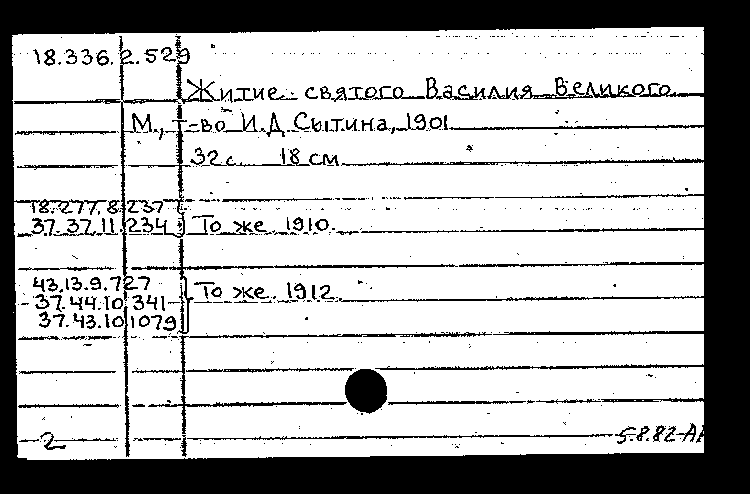 18.336.2.529
Житие святого Василия Великого
М., т-во И.Д. Сытина, 1901
32 с. 18 см.
18.277.8.237
37.37.11.234 } То же 1910.
43.13.9.727
37.44.10.341 } То же. 1912.
37.43.10.1079
2 5.8.82